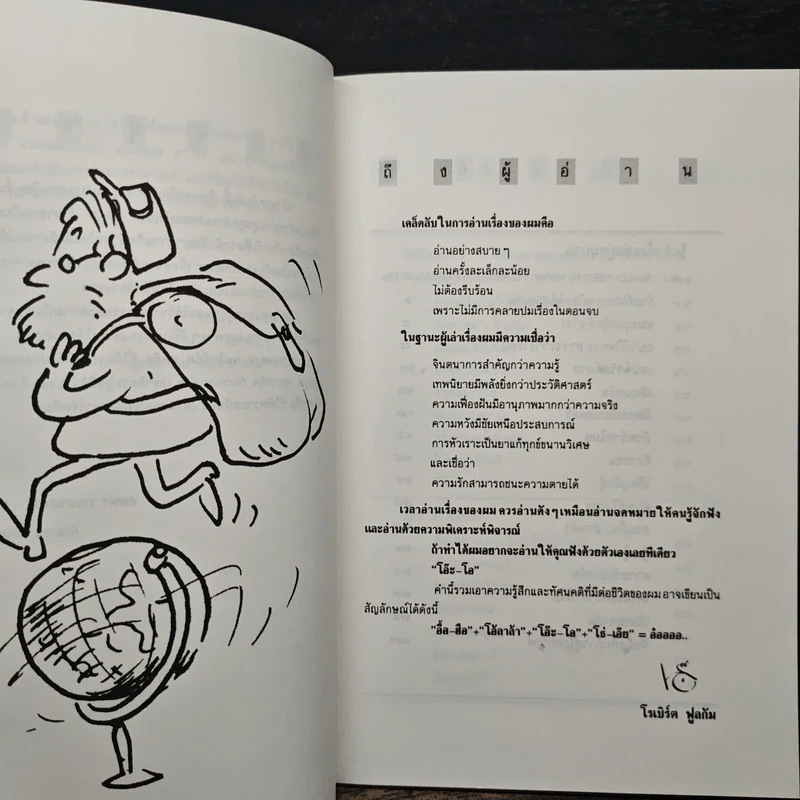 ถึงผู้อ่าน
เคล็ดลับในการอ่านเรื่องของผมคือ
อ่านอย่างสบาย ๆ
อ่านครั้งละเล็กละน้อย
ไม่ต้องรีบร้อน
เพราะไม่มีการคลายปมเรื่องในตอนจบ
ในฐานะผู้เล่าเรื่องผมมีความเชื่อว่า
จินตนาการสำคัญกว่าความรู้
เทพนิยายมีพลังยิ่งกว่าประวัติศาสตร์
ความเฟื่องฝันมีอานุภาพมากกว่าความจริง
ความหวังมีชัยเหนือประสบการณ์
การหัวเราะเป็นยาแก้ทุกข์ขนานวิเศษ
และเชื่อว่า
ความรักสามารถชนะความตายได้
เวลาอ่านเรื่องของผม ควรอ่านดัง ๆ เหมือนอ่านจดหมายให้คนรู้จักฟัง
และอ่านด้วยความพิเคราะห์พิจารณ์
ถ้าทำได้ผมอยากจะอ่านให้คุณฟังด้วยตัวเองเลยทีเดียว
"โอ๊ะ-โอ"
คำนี้รวมเอาความรู้สึกและทัศนคติที่มีต่อชีวิตของผม อาจเขียนเป็น
สัญลักษณ์ได้ดังนี้
"อื้อ-ฮือ"+"โอ้ลาล้า"+"โอ๊ะ-โอ"+"โธ่-เอ๊ย" = อ๋ออออ..
โรเบิร์ต ฟูลกัม